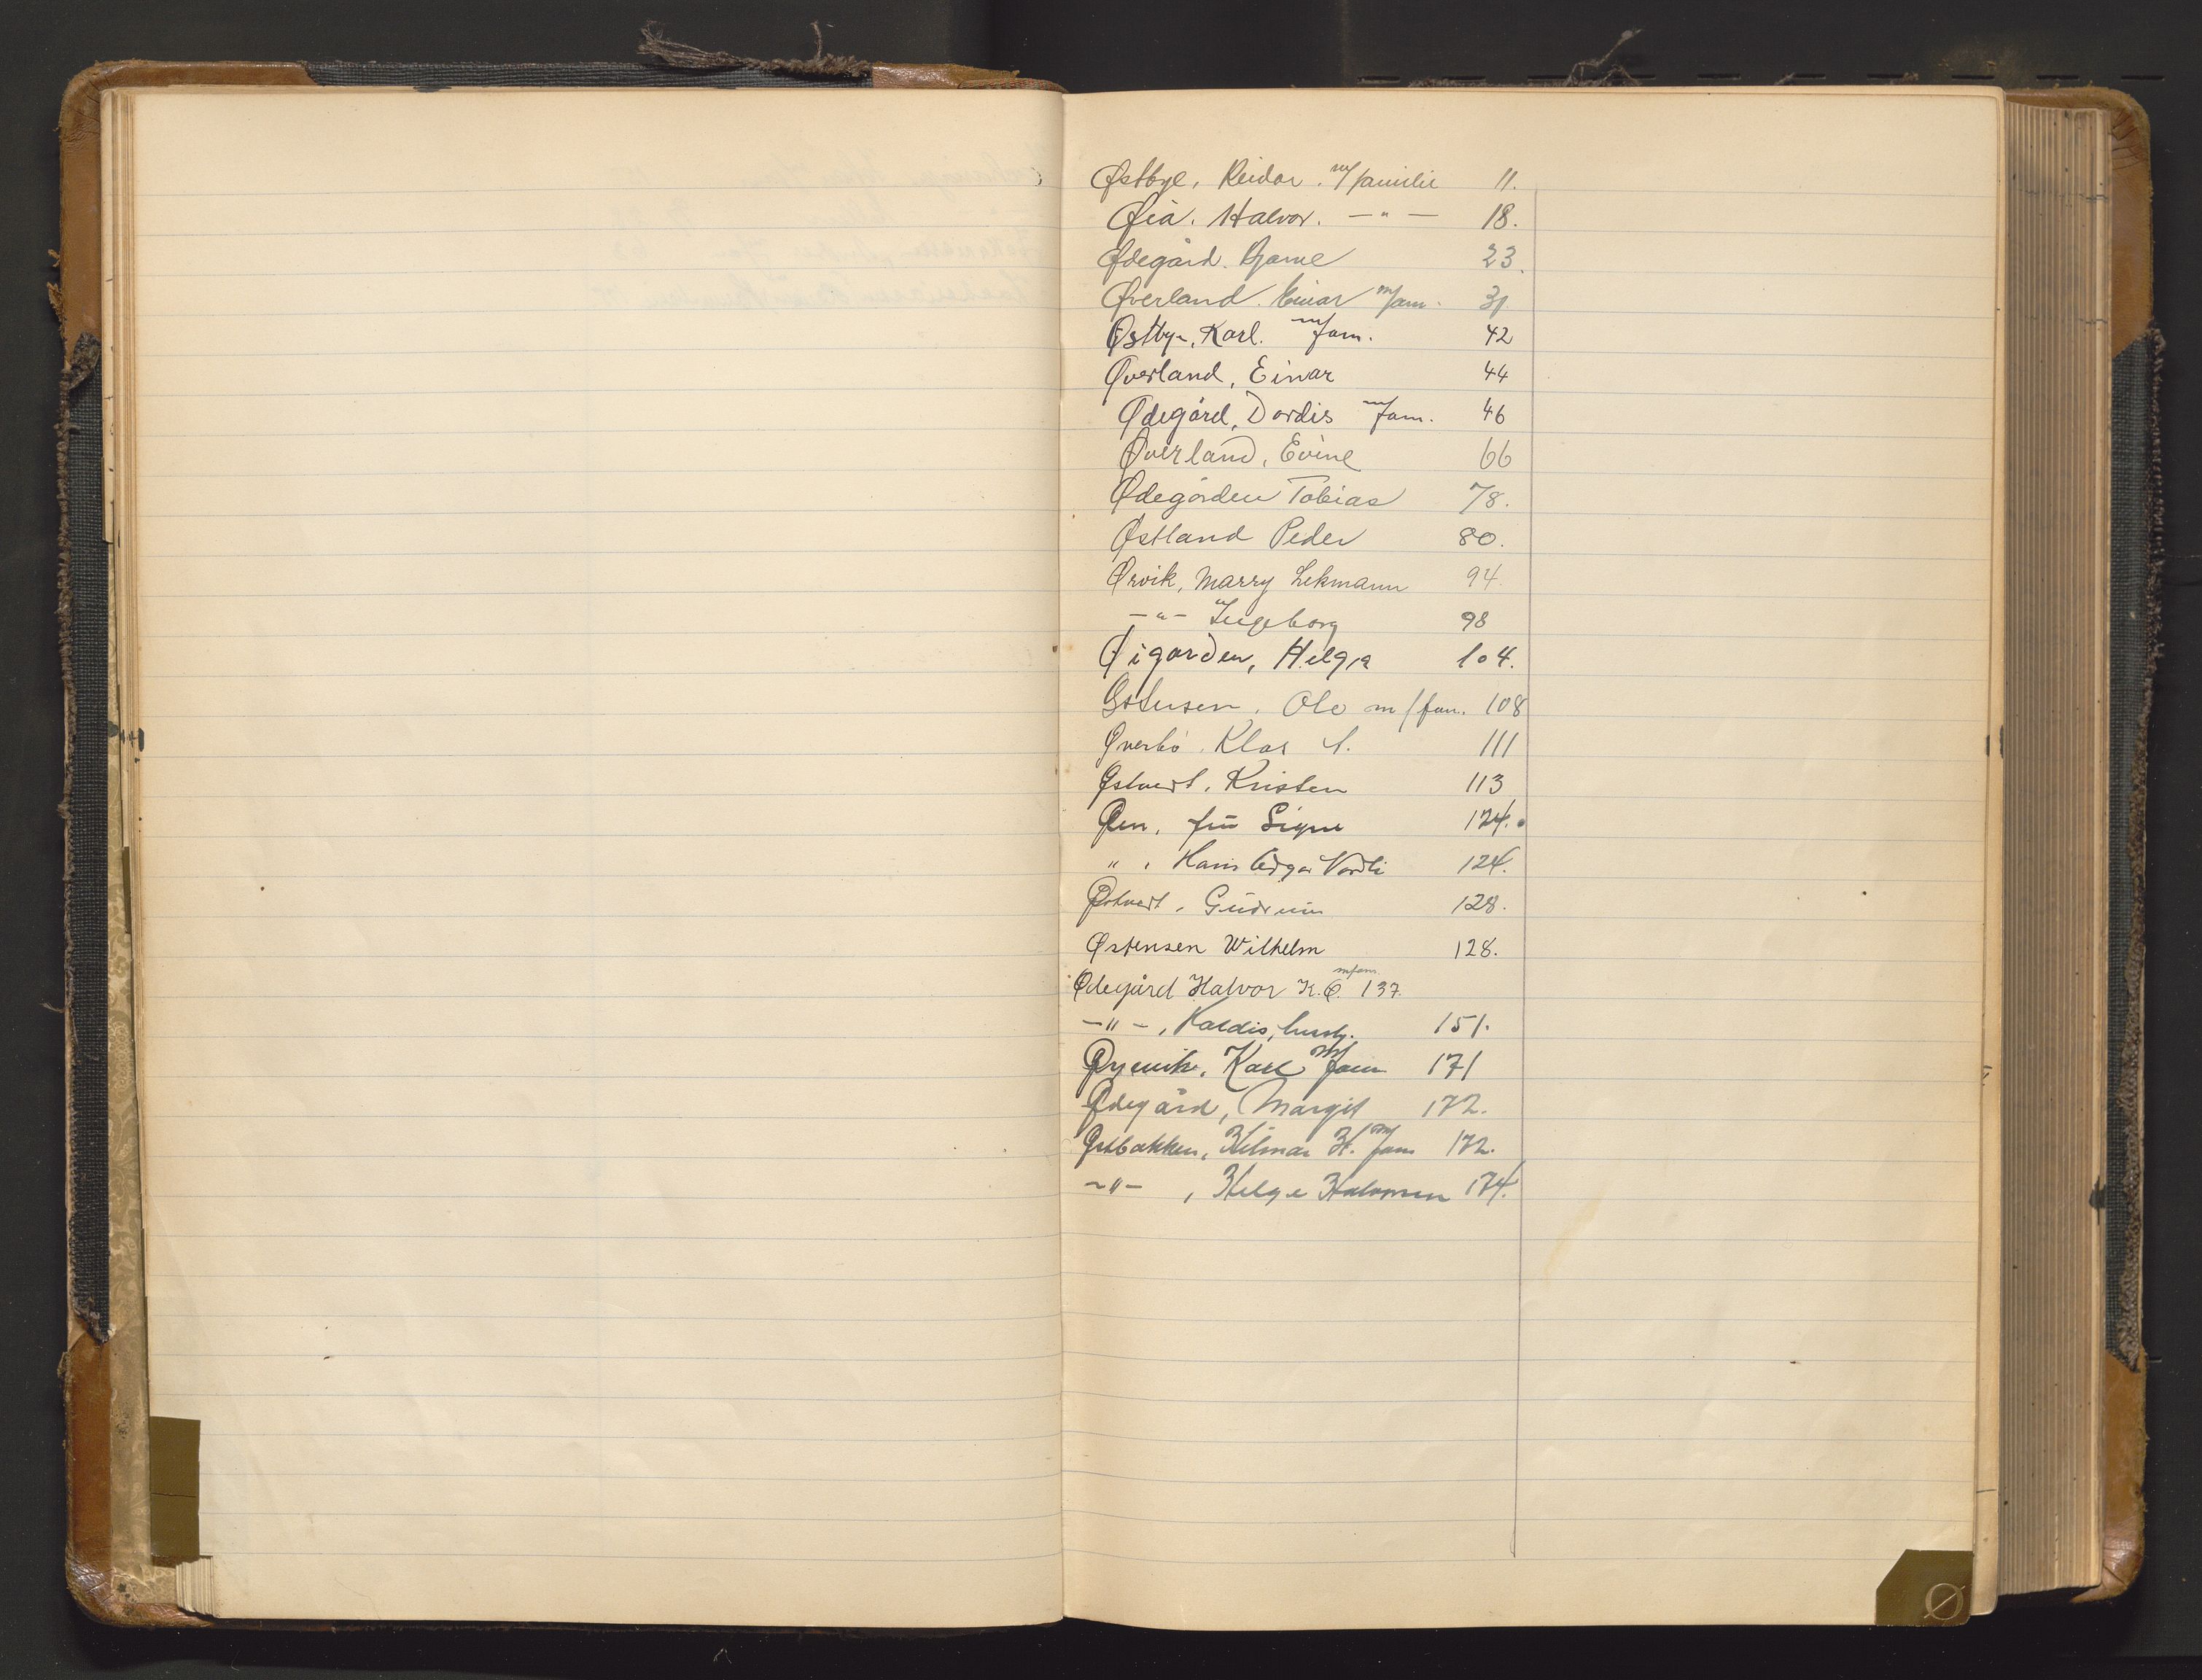 Østbye, Reidar. m/familie 11.
Øia. Halvor. —"— 18.
Ødegård. Bjarne 23.
Øverland. Einar m/fam. 31
Østbye, Karl. m/fam. 42
Øverland, Einar 44
Ødegård, Dordis m/fam. 46
Øverland, Evine 66
Ødegården Tobias 78.
Østland Peder 80.
Ørvik, Marry Lekmann 94.
—"— Ingeborg 98
Øigarden, Helga 104.
Østensen. Ole m/fam. 108
Øverbö. Klas 111
Østvert. Kristen 113
Øen, frü Signe 124.
" , Hans Edgar Nordli 124.
Østvert, Gudrun 128.
Østensen Wilhelm 128.
Ødegård Halvor K.O. m/fam. 137.
—"—, Haldis, 151.
Øyenvik, Karl m/fam 171
Ødegård, Margit 172.
Østbakken, Hilmar H. m/fam 172.
—"— , Helge Halvorsen 174.
Ø